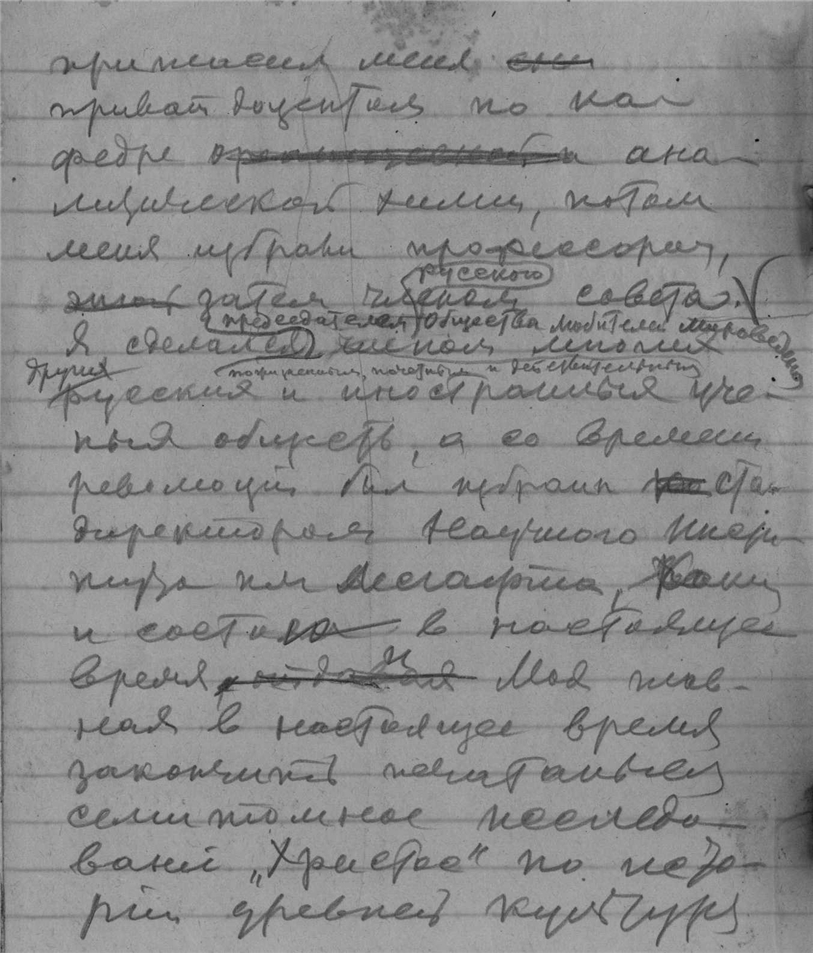 пригласил меня
приват доцентом по ка
федре ана
литической химии, потом
меня избрали профессором,
русского
затем членом совета
председателем Общества любителей мироведения
Я сделался членом многих
других
пожизненным, почетным и действительным
русских и иностранных уче-
ных обществ, а со времени
революции был избран
директором Научного Инсти
тута им Лесгафта,
и состою в настоящее
время и Моя глав-
ная в настоящее время
закончить печатаньем
семитомное исследо
вание „Христос“ по исто-
рии древней культуры